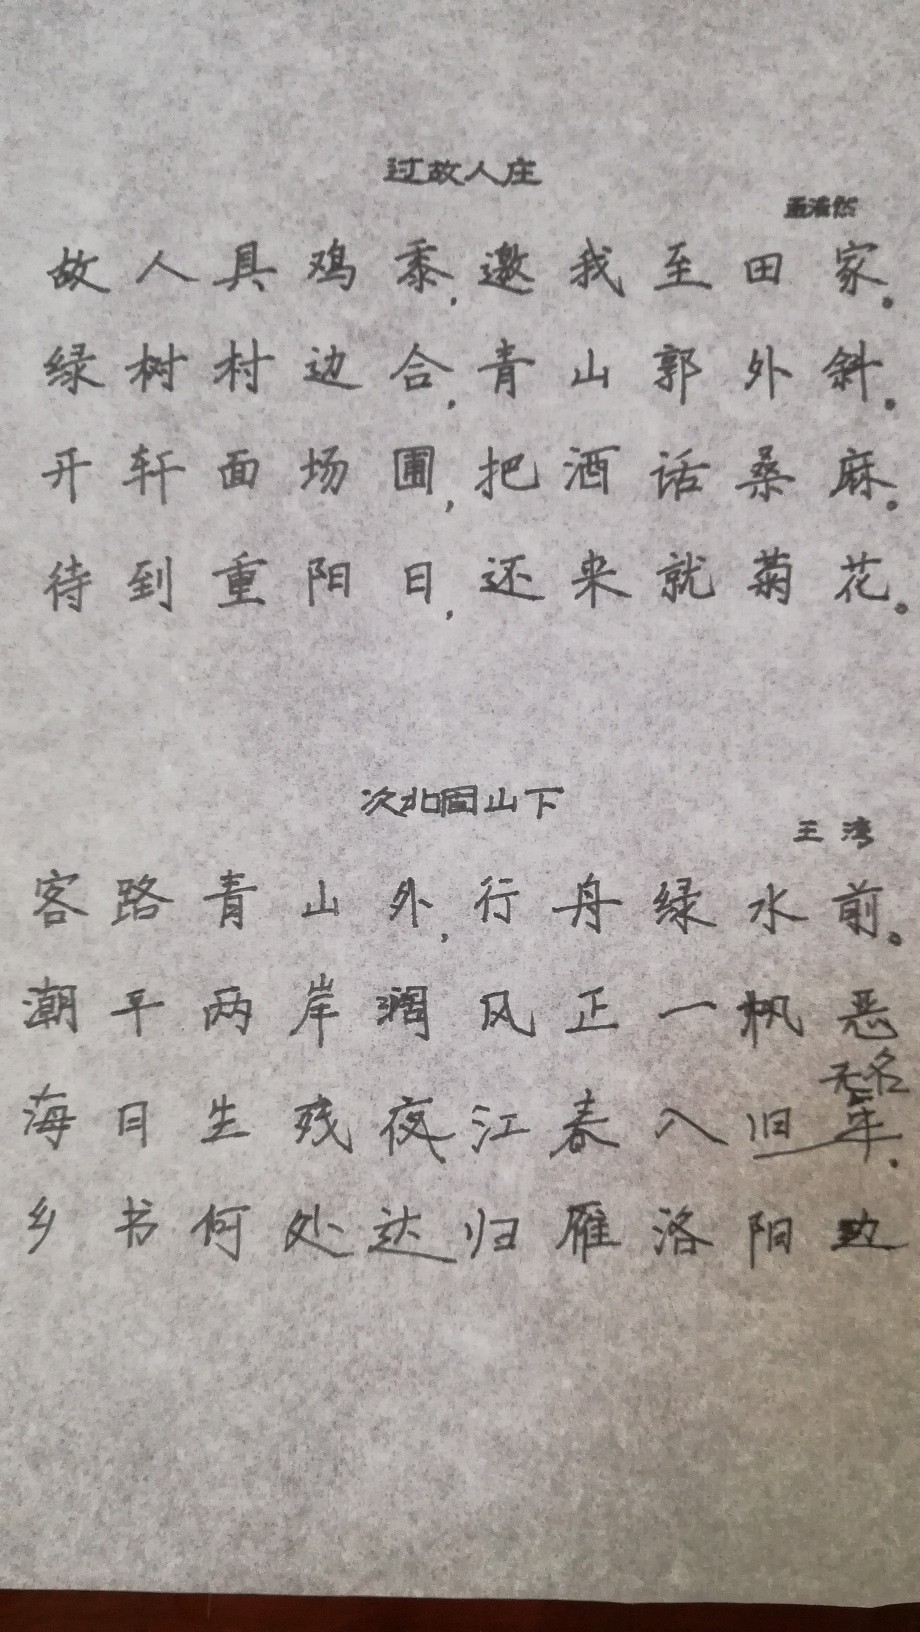 过故人庄
孟浩然
故人具鸡黍,邀我至田家。
绿树村边合,青山郭外斜。
开轩面场圃,把酒话桑麻。
待到重阳日,还来就菊花。
次北固山下
王湾
客路青山外,行舟绿水前。
潮平两岸阔风正一帆恶
无名
海日生残夜江春入旧年.
乡书何处达归雁洛阳边